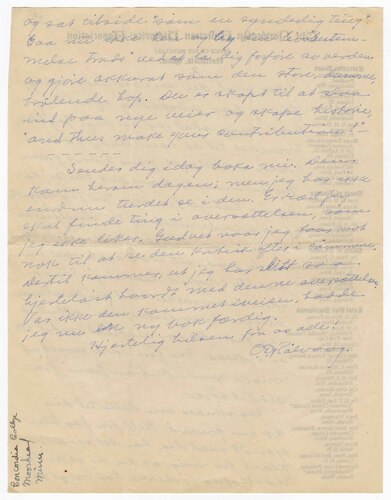 og sat tilside "som en syndedig ting".
Saa nu skal du
melse trods" ved at la dig forføre av verden
og gjøre akkurat som den store, dumme,
brølende hop. Du er skapt til at
ind paa nye veier og skape historie,
"and thus make your contribution!"-
Sendes dig idag boka mi. Den
kom hersin dagen; men jeg har ikke
endnu turdet se i den. Er ræd jeg
skal finde ting i oversættelsen, som
jeg ikke liker. Gud vet naar jeg faar mot
nok til at se den kritisk efter i sømmene.
Dertil kommer, at jeg har slitt saa
hjertelaat haardt med denne oversættelse.
Var ikke den kommet iveien, hadde
jeg nu en ny bok færdig.
Hjertelig hilsen fra os alle!
O E Rølvaag.
Concordia College
Moorhead
Minn